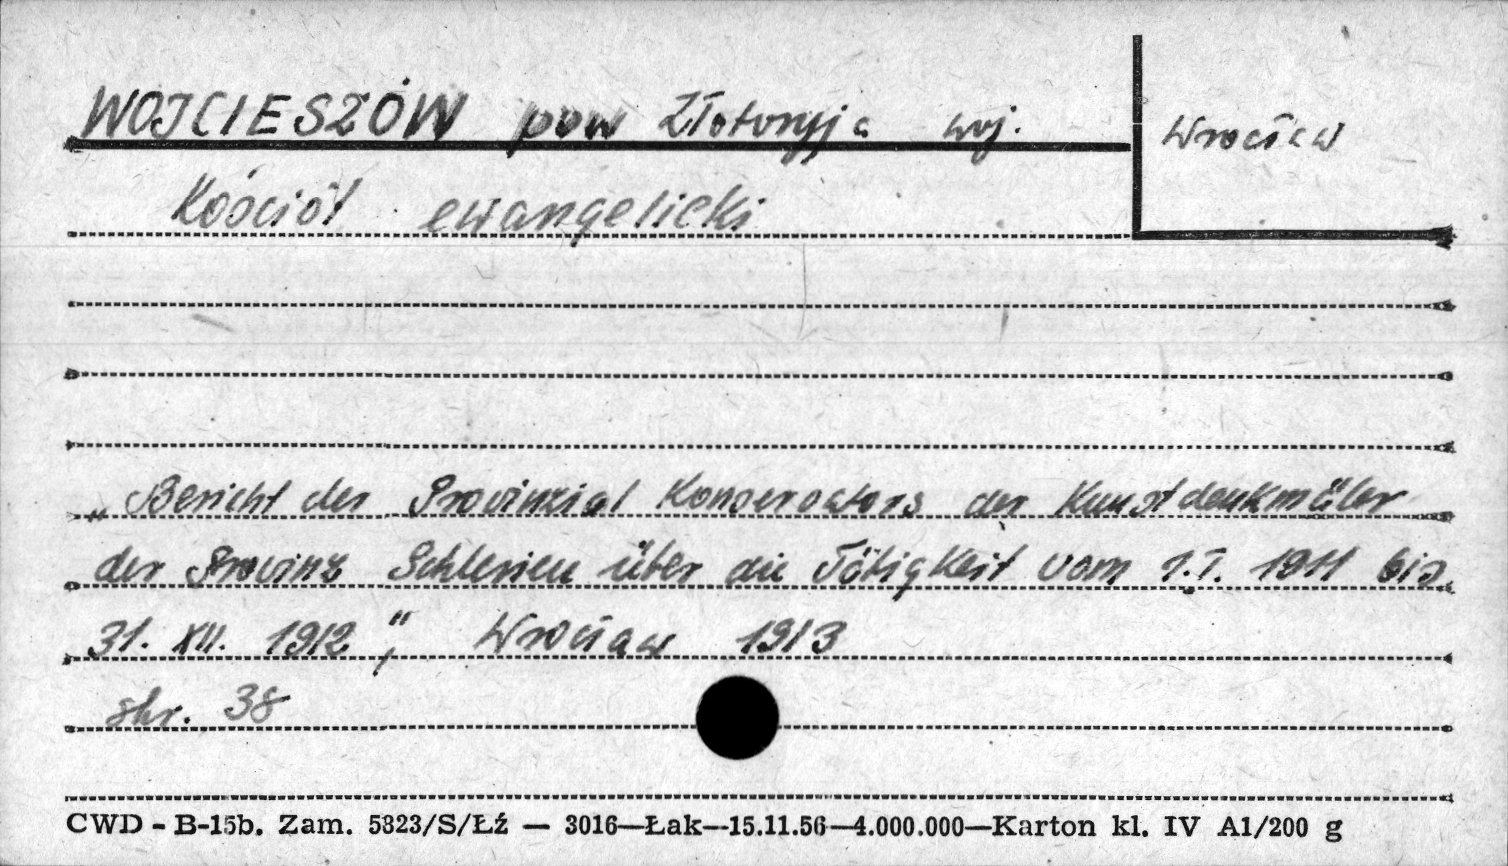 WOJCIESZÓW pow Złotoryja woj. Wrocław
Kościół ewangelicki
„Bericht des Provinzial Konservators der Kunstdenkmäler
der Provinz Schlesien über die Tätigkeit vom 1.I. 1911 bis
31. XII. 1912", Wrocław 1913
str. 38
CWD - B-15b. Zam. 5823/S/Łź — 3016—Łak—15.11.56—4.000.000—Karton kl. IV A1/200 g